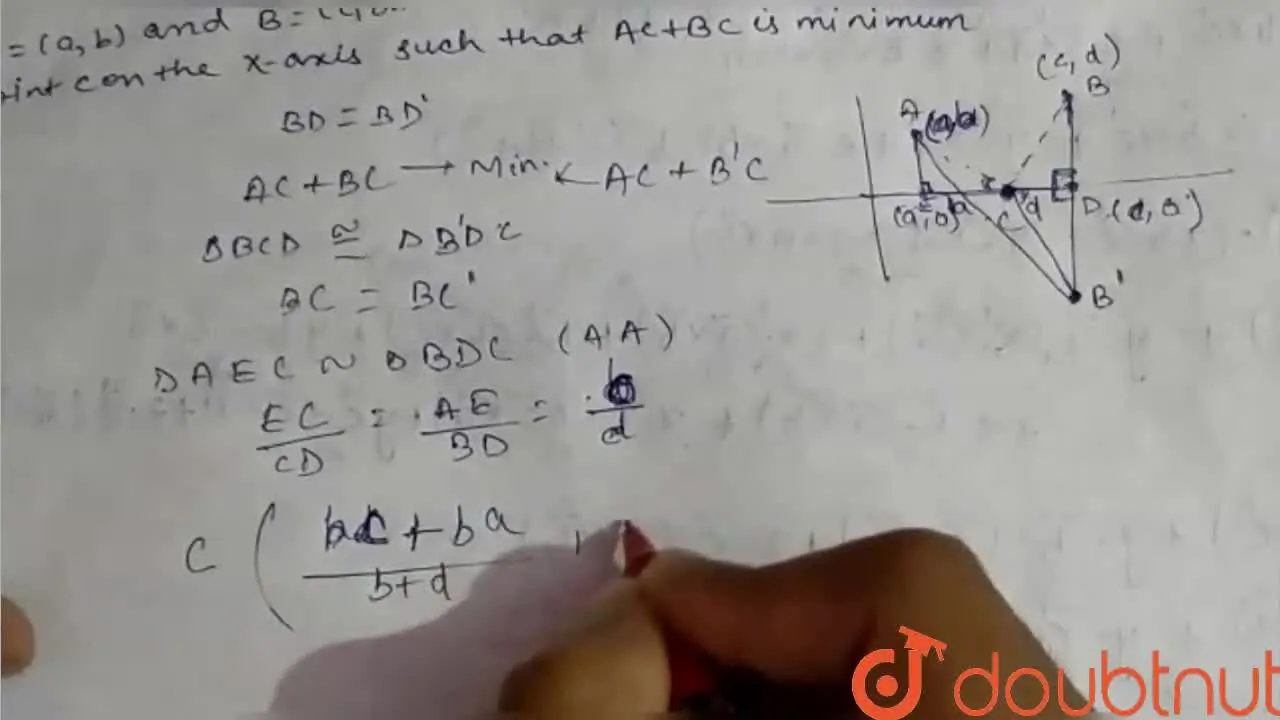 = (a, b) and B =
int C on the x-axis such that AC+BC is minimum
BD = BD'
AC + BC → Min. ← AC + B'C
Δ BCD ≅ Δ B'DC
BC = BC'
Δ AEC ~ Δ BDC (A A)
EC/CD = AE/BD = b/d
C ( bc + ba / b+d ,
(c, d)
B
A
C
D
B'
doubtnut